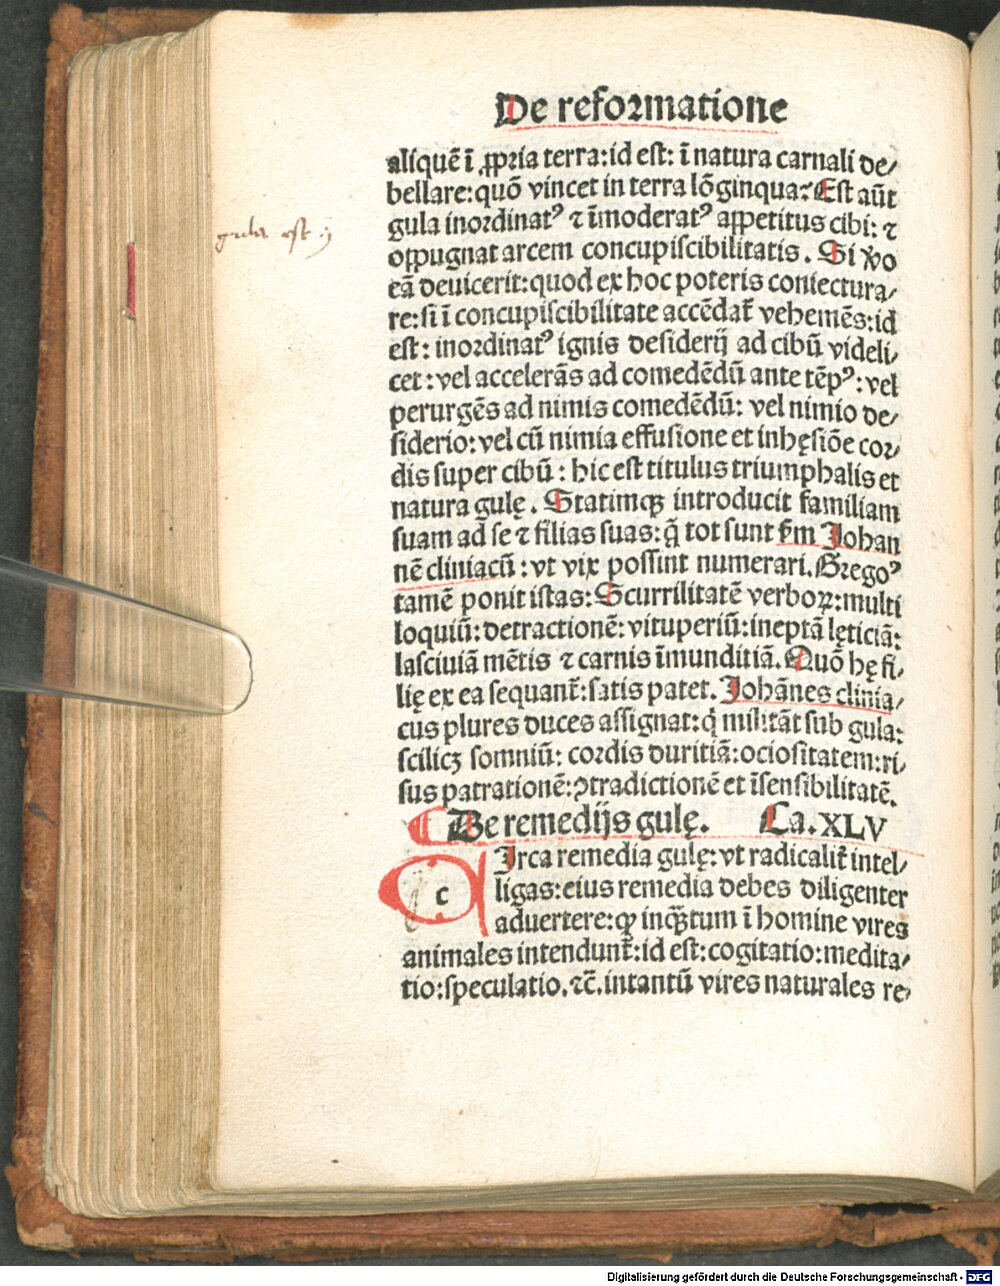 De reformatione
aliquē ī ꝓpria terra: id est: ī natura carnali de⸗
bellare: quō vincet in terra lōginqua? Est aūt
gula est ij
gula inordinatꝰ ⁊ īmoderatꝰ appetitus cibi: ⁊
oppugnat arcem concupiscibilitatis. Si ỽo
eā deuicerit: quod ex hoc poteris coniectura⸗
re: si ī concupiscibilitate accēdat̄ vehemēs: id
est: inordinatꝰ ignis desiderij ad cibū videli⸗
cet: vel accelerās ad comedēdū ante tēpꝰ: vel
perurgēs ad nimis comedēdū: vel nimio de⸗
siderio: vel cū nimia effusione et inhęsiōe cor⸗
dis super cibū: hic est titulus triumphalis et
natura gulę. Statimqꝫ introducit familiam
suam ad se ⁊ filias suas: q̄ tot sunt fm Johan
nē cliniacū: vt vix possint numerari. Gregoꝰ
tamē ponit istas: Scurrilitatē verboꝝ: multi
loquiū: detractionē: vituperiū: ineptā lęticiā:
lasciuiā mētis ⁊ carnis īmunditiā. Quō hę fi⸗
lię ex ea sequant̄: satis patet. Johānes clinia⸗
cus plures duces assignat: q̇ militāt sub gula:
scilicꝫ somniū: cordis duritiā: ociositatem: ri⸗
sus patrationē: ꝯtradictionē et īsensibilitatē.
De remedijs gulę. Ca. XLV
c Irca remedia gulę: vt radicalit̄ intel⸗
ligas: eius remedia debes diligenter
aduertere: qꝙ inqꝫtum ī homine vires
animales intendunt̄: id est: cogitatio: medita⸗
tio: speculatio. ⁊c̄. intantū vires naturales re⸗
Digitalisierung gefördert durch die Deutsche Forschungsgemeinschaft - DFG